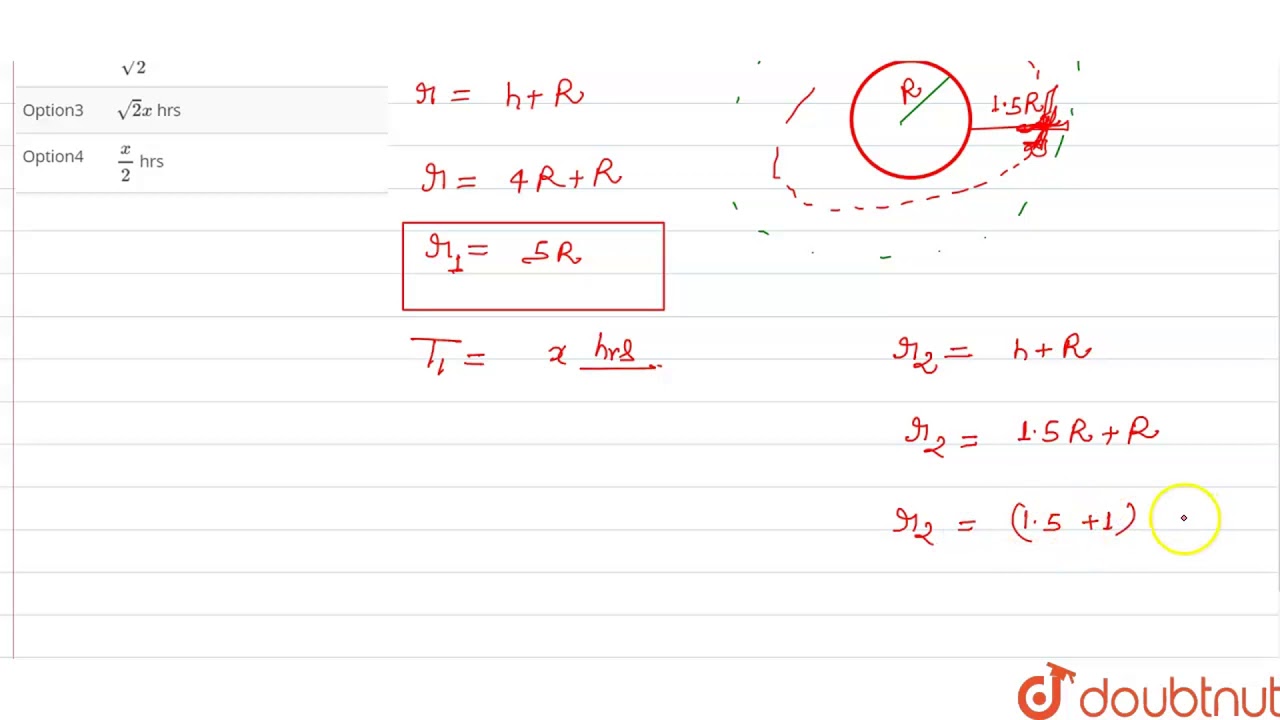 √2
Option3 √2x hrs
Option4 x/2 hrs
r = h + R
r = 4R + R
r₁ = 5R
T₁ = x hrs
R
1.5R
r₂ = h + R
r₂ = 1.5R + R
r₂ = (1.5 + 1)
doubtnut